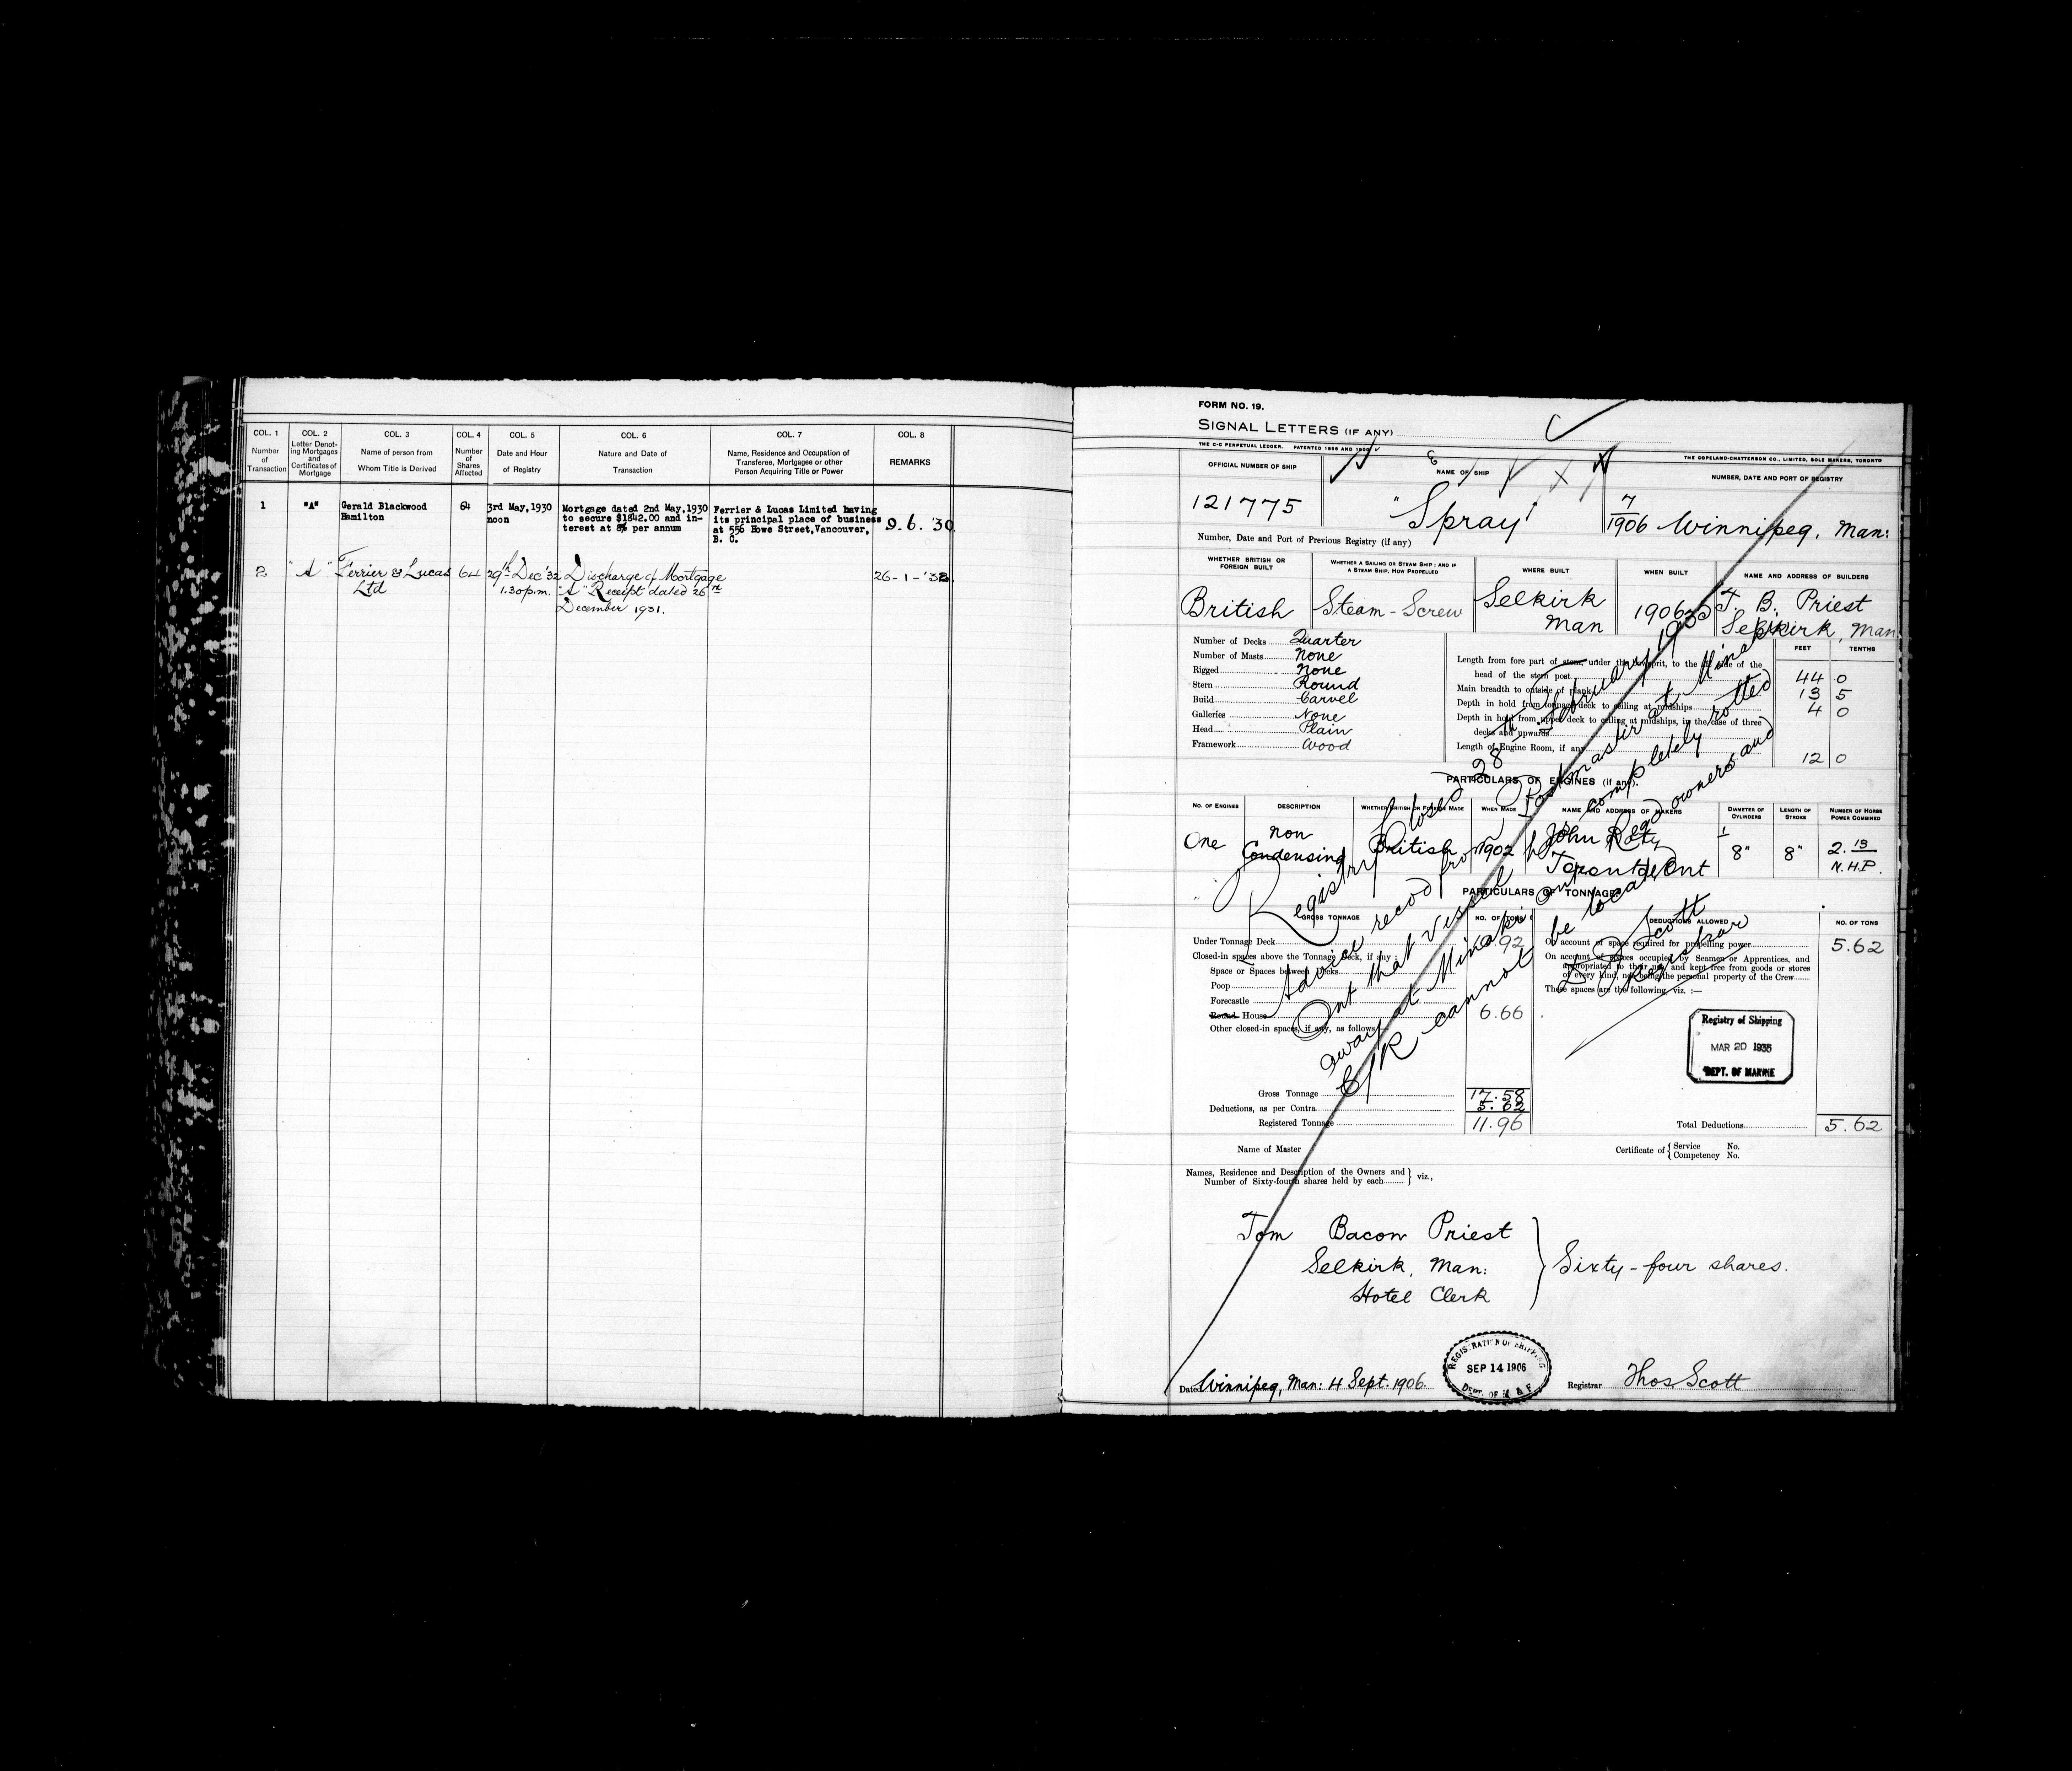 COL. 1 COL. 2 COL. 3 COL. 4 COL. 5 COL. 6 COL. 7 COL. 8
Number of Transaction
Letter Denoting Mortgages and Certificates of Mortgage
Name of person from Whom Title is Derived
Number of Shares Affected
Date and Hour of Registry
Nature and Date of Transaction
Name, Residence and Occupation of Transferee, Mortgagee or other Person Acquiring Title or Power
REMARKS
1 "A" Gerald Blackwood Hamilton 64 3rd May, 1930 noon
Mortgage dated 2nd May, 1930
to secure $1842.00 and in-
terest at 8% per annum
Ferrier & Lucas Limited having
its principal place of business
at 556 Howe Street, Vancouver,
B. C.
9.6.'30
2 "A" Ferrier & Lucas Ltd 64 29th Dec '32 1.30 p.m.
Discharge of Mortgage
"A" Receipt dated 26th
December 1931.
26-1-'33
FORM NO. 19.
SIGNAL LETTERS (IF ANY)
THE C-C PERPETUAL LEDGER. PATENTED
THE COPELAND-CHATTERSON CO., LIMITED, SOLE MAKERS, TORONTO
OFFICIAL NUMBER OF SHIP
NAME OF SHIP
NUMBER, DATE AND PORT OF REGISTRY
121775
"Spray"
7/1906 Winnipeg, Man:
Number, Date and Port of Previous Registry (if any)
WHETHER BRITISH OR FOREIGN BUILT
WHETHER A SAILING OR STEAM SHIP; AND IF A STEAM SHIP, HOW PROPELLED
WHERE BUILT
WHEN BUILT
NAME AND ADDRESS OF BUILDERS
British
Steam-Screw
Selkirk Man
1906
T. B. Priest
Selkirk, Man
Number of Decks Quarter
Number of Masts None
Rigged None
Stern Round
Build Carvel
Galleries None
Head Plain
Framework Wood
FEET TENTHS
Length from fore part of stem, under the bowsprit, to the aft side of the
head of the stern post 44 0
Main breadth to outside of plank 13 5
Depth in hold from tonnage deck to ceiling at midships 4 0
Depth in hold from upper deck to ceiling at midships, in the case of three
decks and upwards
Length of Engine Room, if any 12 0
PARTICULARS OF ENGINES (if any).
NO. OF ENGINES
DESCRIPTION
WHETHER BRITISH OR FOREIGN MADE
WHEN MADE
NAME AND ADDRESS OF MAKERS
DIAMETER OF CYLINDERS
LENGTH OF STROKE
NUMBER OF HORSE POWER COMBINED
One
Non Condensing
British
1902
John Doty
Toronto, Ont
1
8"
8"
2.13
N.H.P.
PARTICULARS OF TONNAGE
GROSS TONNAGE
NO. OF TONS
DEDUCTIONS ALLOWED
NO. OF TONS
Under Tonnage Deck
Closed-in spaces above the Tonnage Deck, if any:
Space or Spaces between Decks
Poop
Forecastle
Round House 6.66
Other closed-in spaces, if any, as follows
Gross Tonnage 17.58
Deductions, as per Contra 5.62
Registered Tonnage 11.96
On account of space required for propelling power 5.62
On account of spaces occupied by Seamen or Apprentices, and
appropriated to their use, and kept free from goods or stores
of every kind, not being the personal property of the Crew
These spaces are the following, viz. :—
Total Deductions 5.62
Registry closed 28th February 1935
Advice recd from Postmaster at Minaki
Ont that vessel completely rotted
away at Minaki Ont and owners and
C/R cannot be located
Scott
Registrar
Registry of Shipping
MAR 20 1935
DEPT. OF MARINE
Name of Master
Certificate of { Service No.
Competency No.
Names, Residence and Description of the Owners and
Number of Sixty-fourth shares held by each } viz.,
Tom Bacon Priest
Selkirk, Man:
Hotel Clerk
Sixty-four shares.
Dated Winnipeg, Man: 4 Sept. 1906.
REGISTRATION OF SHIPPING
SEP 14 1906
DEPT. OF M & F
Registrar Thos Scott